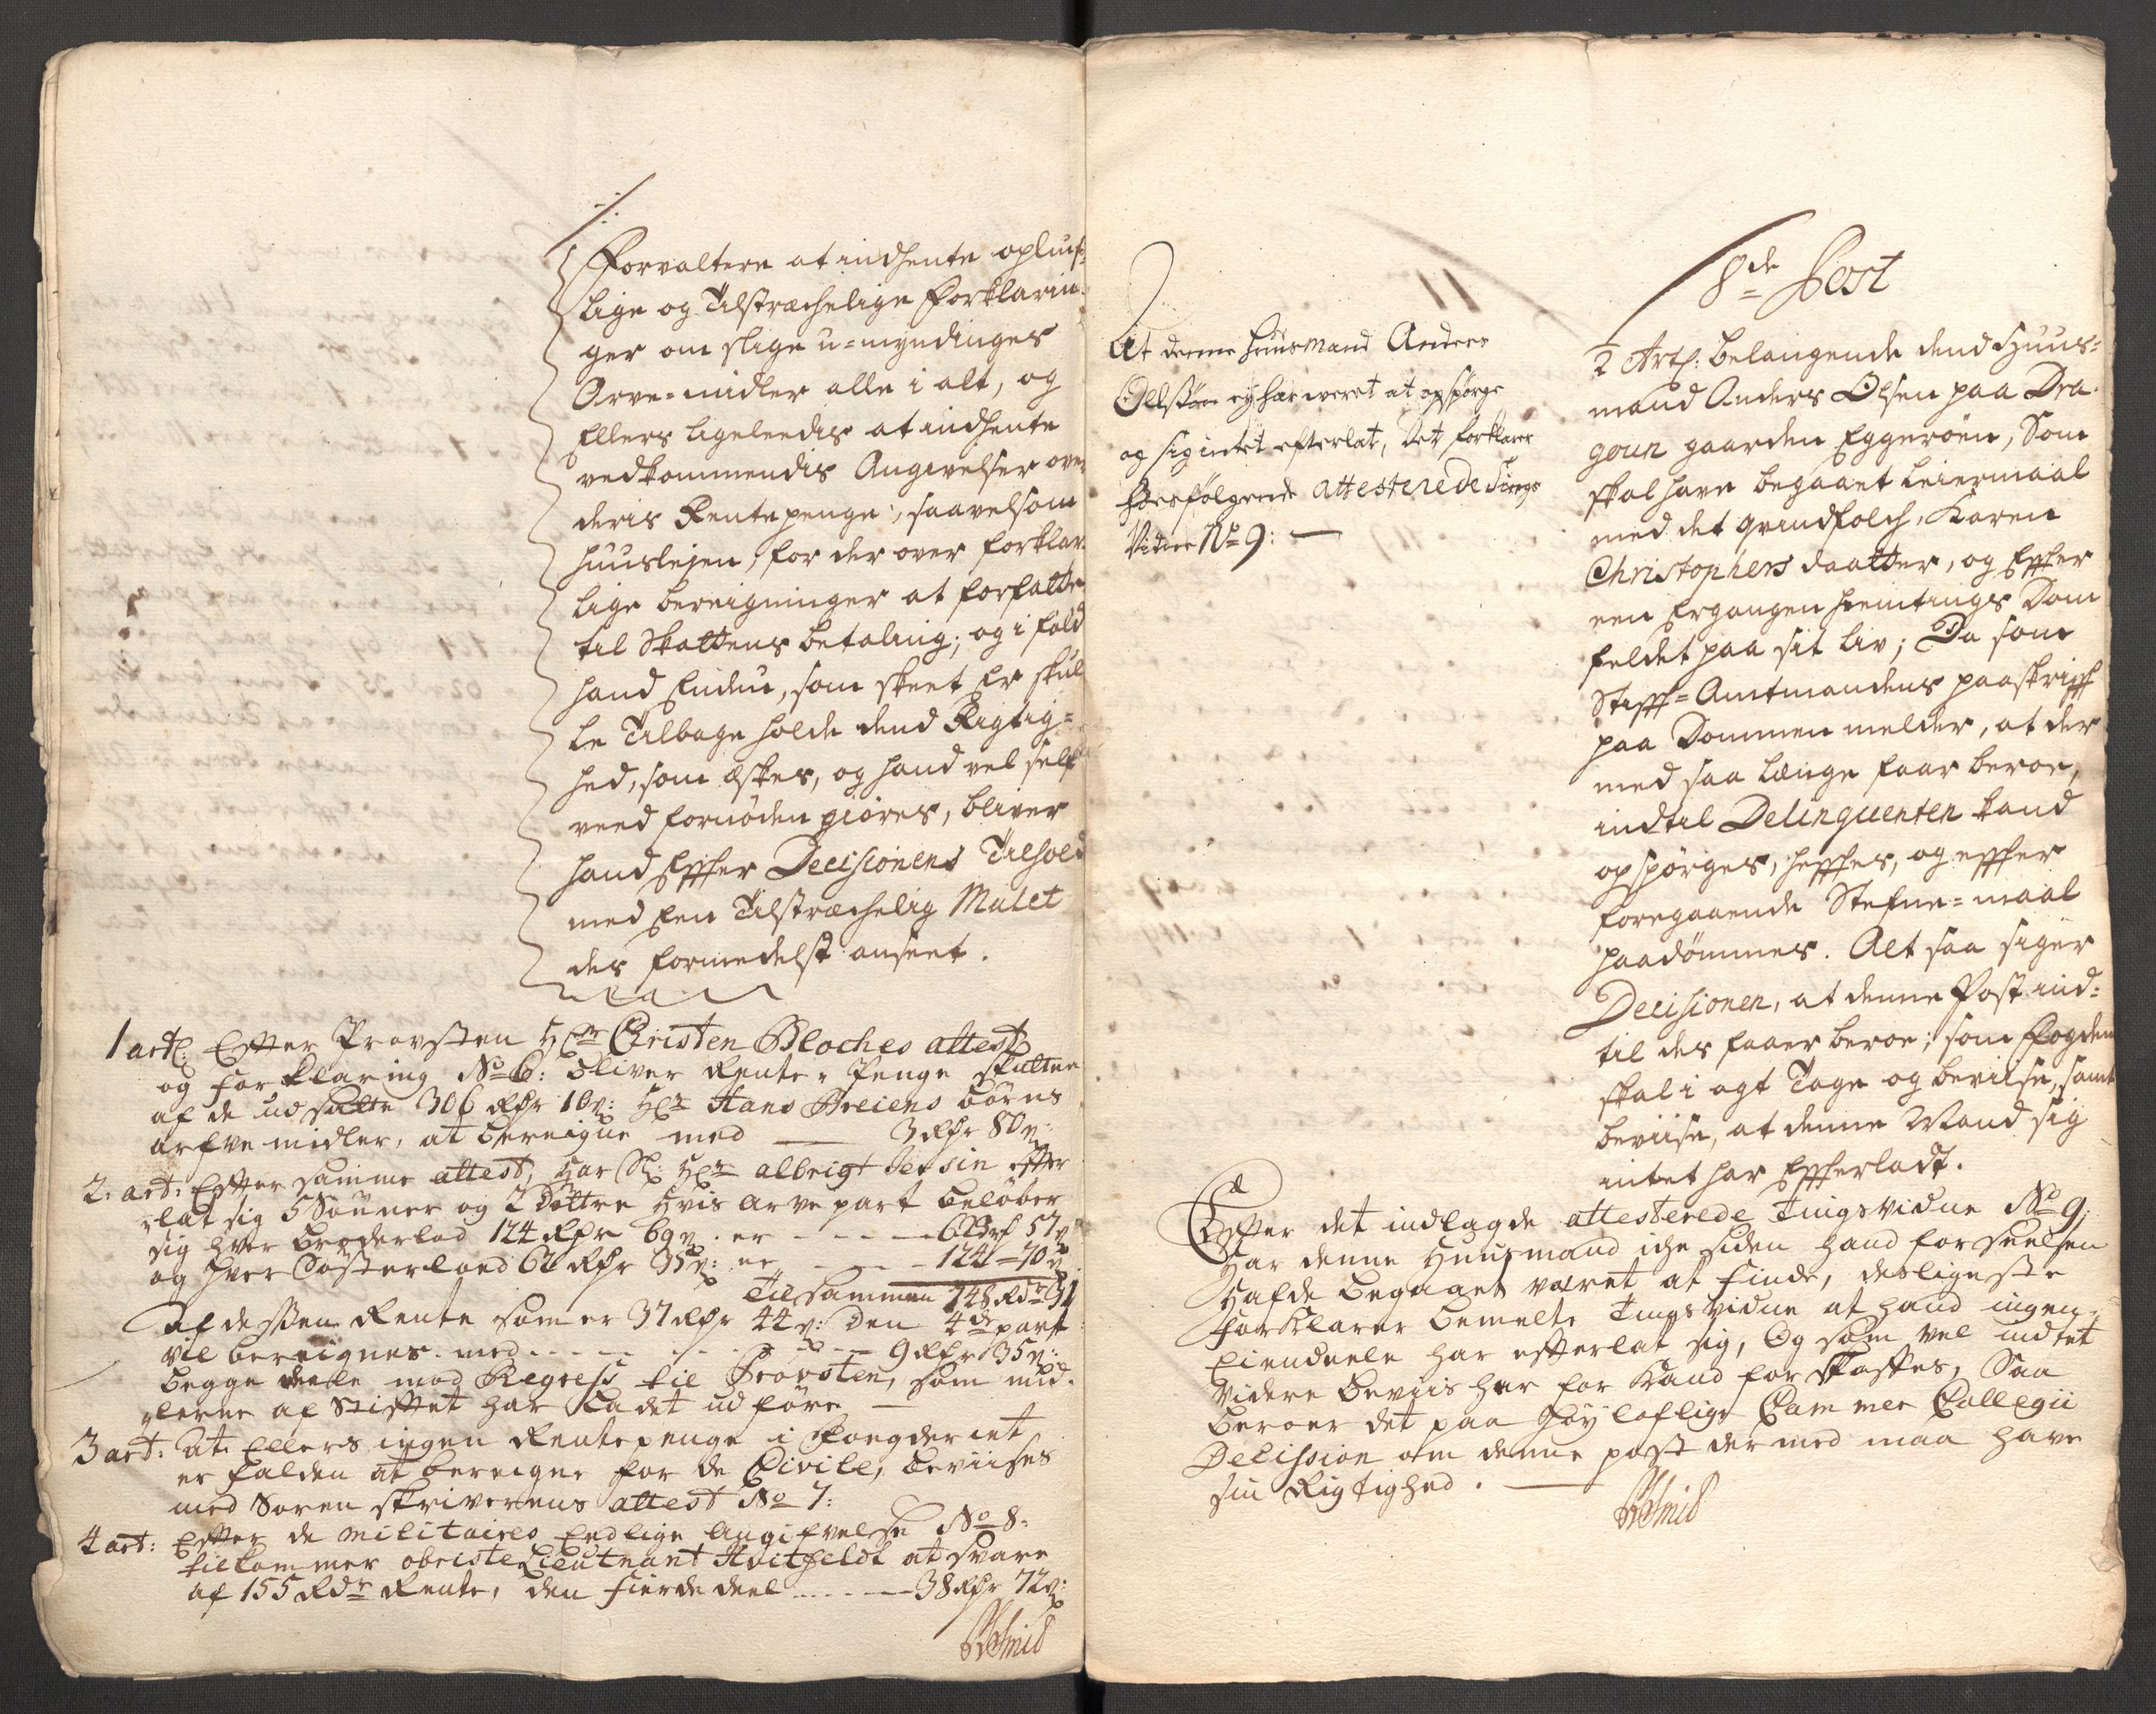 ./.
Forvaltere at indhente opliuß-
lige og Tilstræchelige Forklarin-
ger om slige u-myndinges
Arve-midler alle i alt, og
Ellers ligeleedis at indhente
vedkommendis Angivelser over
deris Rentepenge, saavelsom
huuslejen, for der over forklar-
lige bereigninger at forfatte
til Skattens betaling; og i fald
hand Endnu, som skeet Er skul-
le Tilbage holde dend Rigtig-
hed, som æskes, og hand vel self
veed fornøden giøres, bliver
hand Effter Decisionens Tilhold
med Een Tilstræchelig Mulct
des formedelst anseet.
1 art: Efter Provsten Hr Christen Bloches attest
og forklaring No 6: bliver Rente-Penge skatten
af de udsatte 306 Rdr 10 s: Hr Hans Breiens børns
arfve midler, at bereigne med — 3 Rdr 80 s:
2: art: Efter samme attest, har Sl: Hr albrigt Jensin efter
lat sig 5 Sønner og 2 Døttre hvis arve part beløber
sig hver broderlod 124 Rdr 69 s: er - - - 6 Rdr 57 s
og hver Søsterlod 62 Rdr 35 s: er - - - 124 - 70 s
Tilsammen 748 Rdr 31
af dessen Rente som er 37 Rdr 44 s: den 4de part
vil bereignes med - - - - - 9 Rdr 35 s:
begge deele mod Regress til Provsten, som mid-
lerne af Stiftet har ladet udføre —
3 art: at Ellers ingen Rentepenge i Fogderiet
er falden at bereigne for de Civile, beviises
med Soren skriverens attest No 7:
4 art: Efter de Militaires Endlige Angifvelse No 8:
tilkommer obriste Lieutnant Hvitfeldt at svare
af 155 Rdr Rente, den fierdedeel - - - 38 Rdr 72 s:
At denne huusmand Anders
Ollssøn ey har weret at opspørge
og sig intet efterlat, det forklarer
hoesfølgende attesterede Tings
Vidne No 9: —
8de Post
2 Art: belangende dend Huus-
mand Anders Olsen paa Dra-
goun gaarden Eggerøen, Som
skal have begaaet Leiermaal
med det qvindfolch, Karen
Christophers daatter, og Effter
een Ergangen hiemtings Dom
feldet paa sit liv; Da som
Stifft-Amtmandens paaskrifft
paa Dommen melder, at der
med saa længe faar beroe,
indtil Delinquenten kand
opspørges, hefftes, og effter
foregaaende Stefne-maal
paadømmes. Alt saa siger
Decisionen, at denne Post ind-
til des faaer beroe; som Fogden
skal i agt Tage og beviise, samt
beviise, at denne Mand sig
intet har Effterladt.
Efter det indlagde attesterede Tingsvidne No 9:
har denne Huusmand iche siden hand forseelsen
hafde begaaet været at finde, desligeste
forklarer bemelte Tingsvidne at hand ingen
Eiendeele har efterlat sig, Og som vel intet
videre beviis her for kand forskaffes, Saa
beroer det paa høyloflige Cammer Collegii
Delission om denne post der med maa have
sin Rigtighed. —